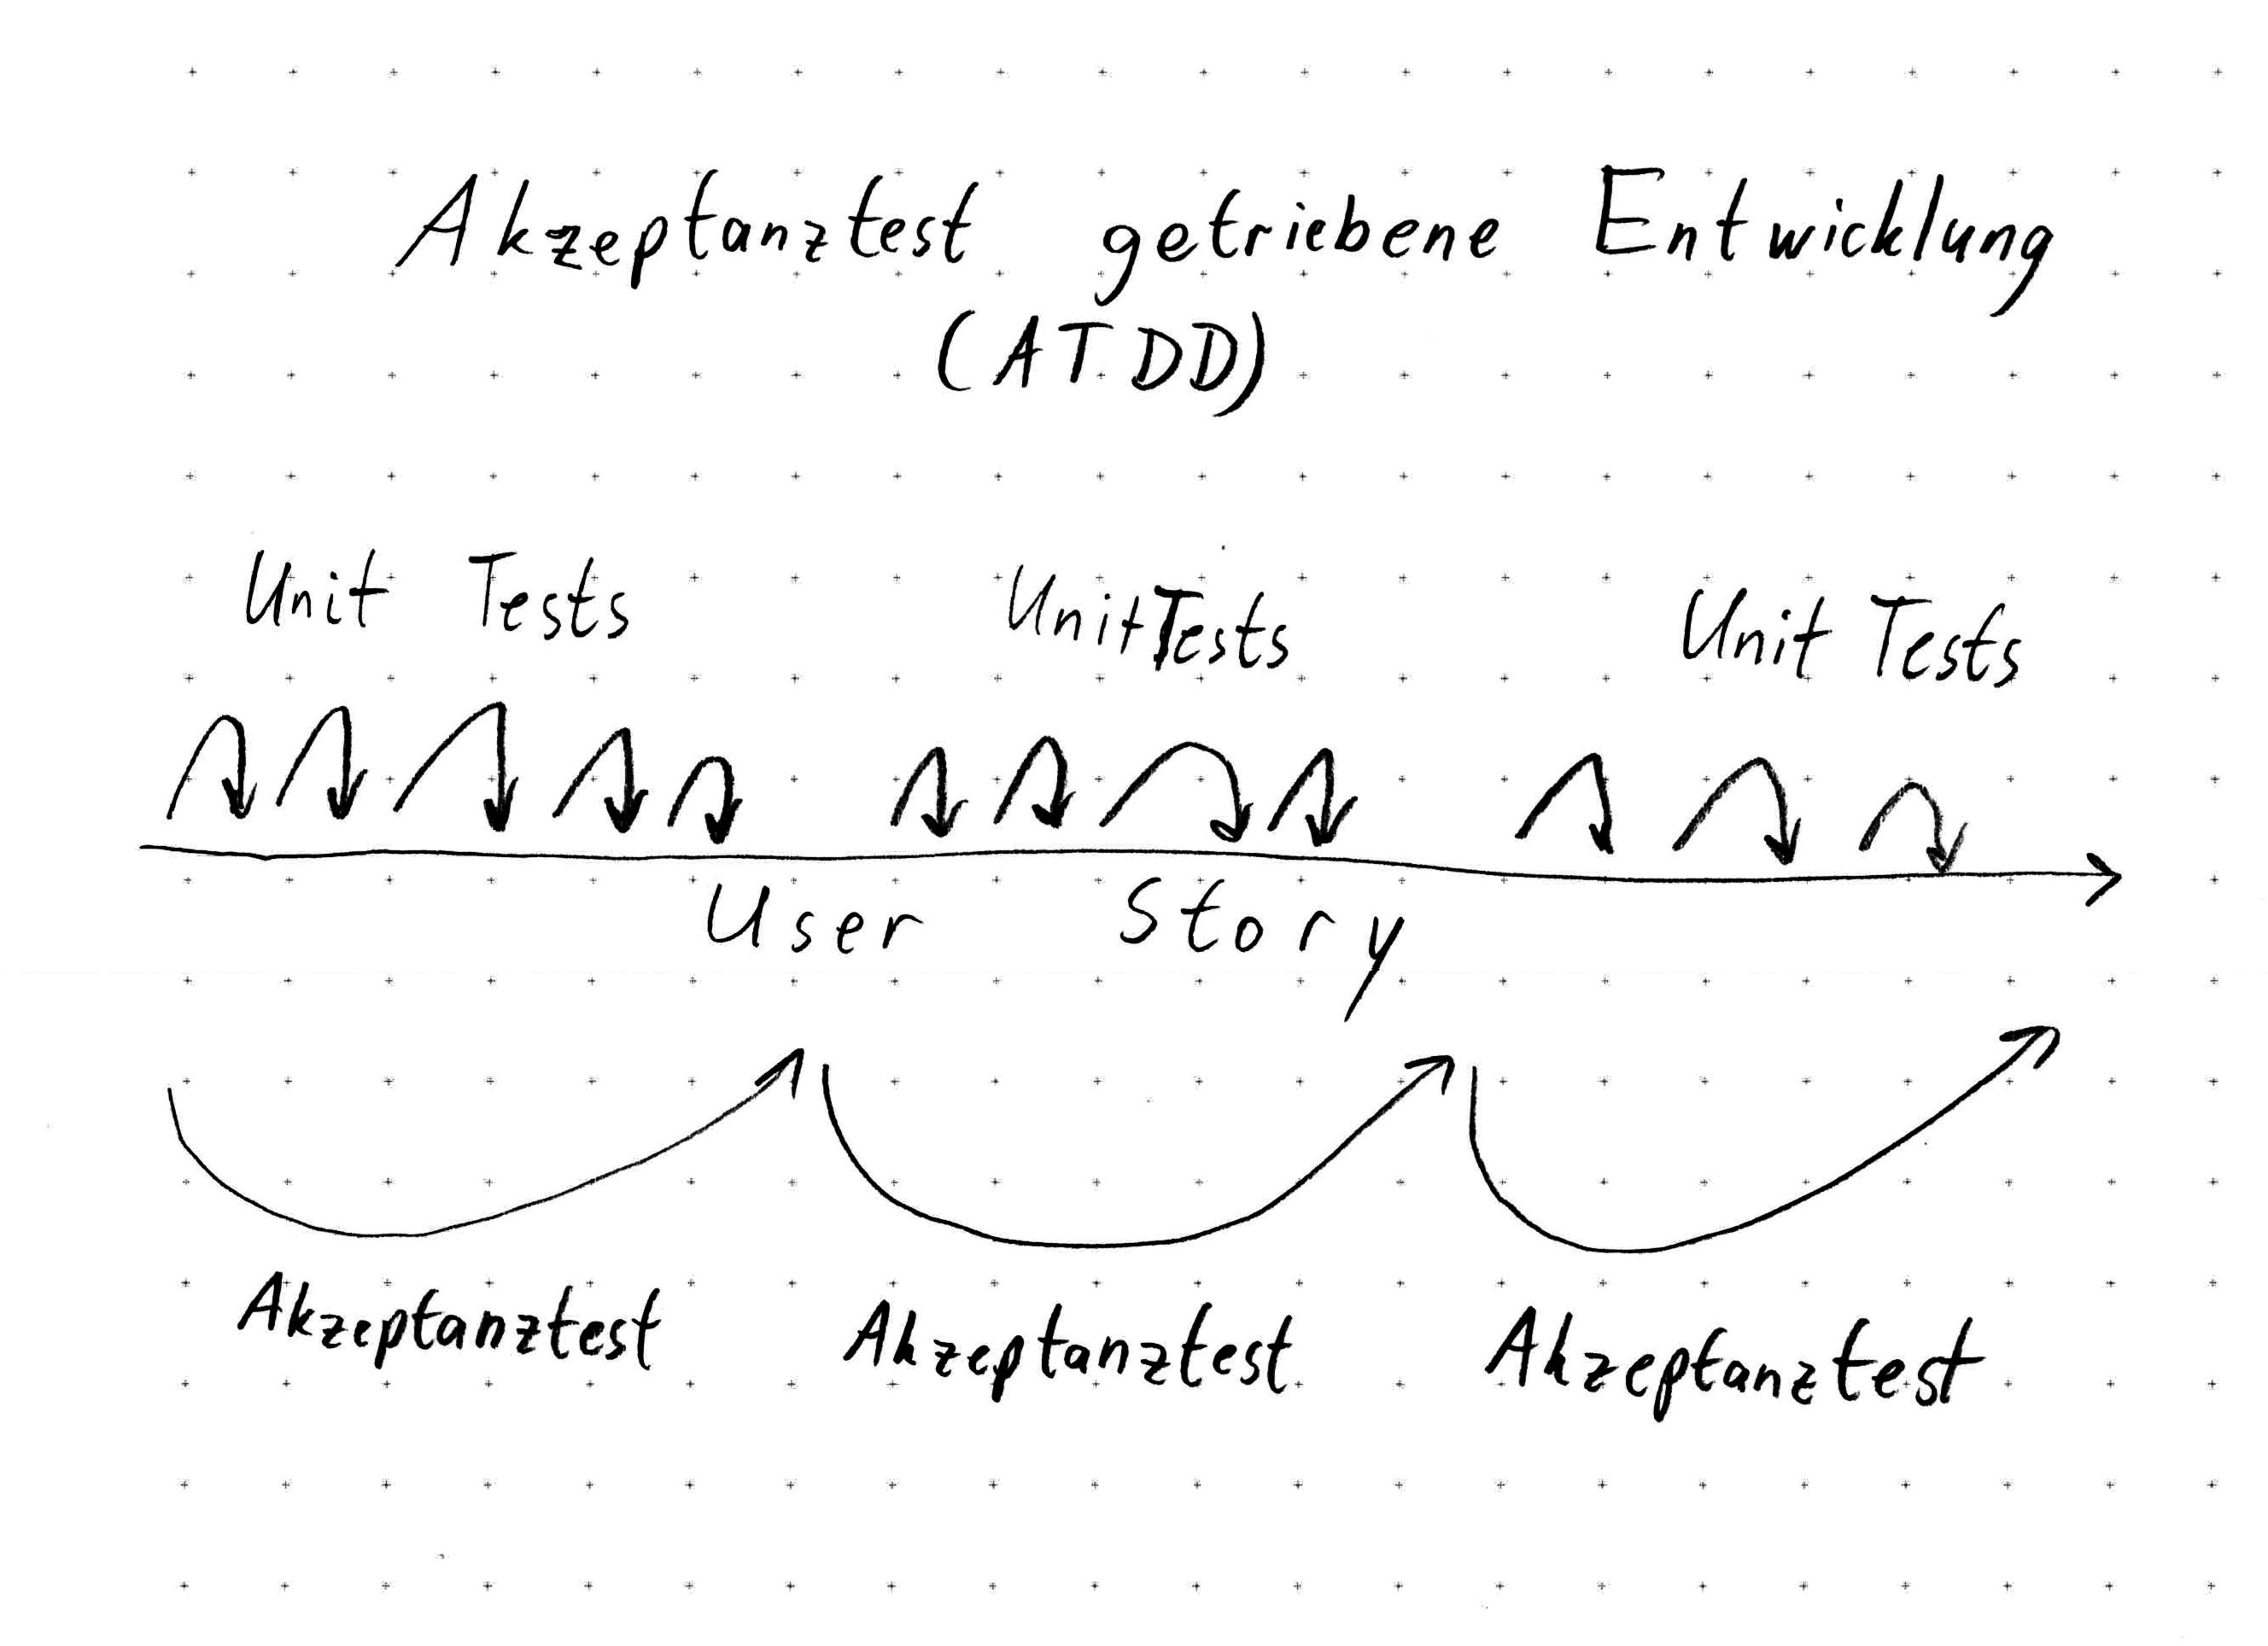 Akzeptanztest getriebene Entwicklung
(ATDD)
Unit Tests UnitTests Unit Tests
User Story
Akzeptanztest Akzeptanztest Akzeptanztest